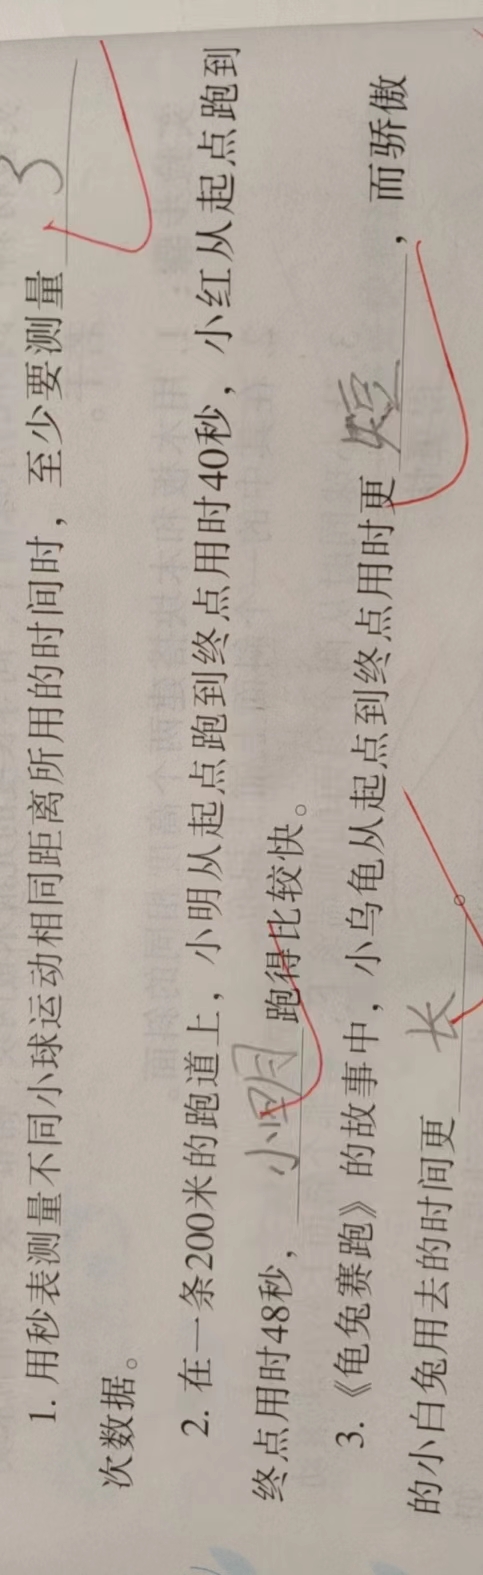 1. 用秒表测量不同小球运动相同距离所用的时间时，至少要测量 3
次数据。
2. 在一条200米的跑道上，小明从起点跑到终点用时40秒，小红从起点跑到
终点用时48秒，小明跑得比较快。
3.《龟兔赛跑》的故事中，小乌龟从起点到终点用时更 短，而骄傲
的小白兔用去的时间更 长。